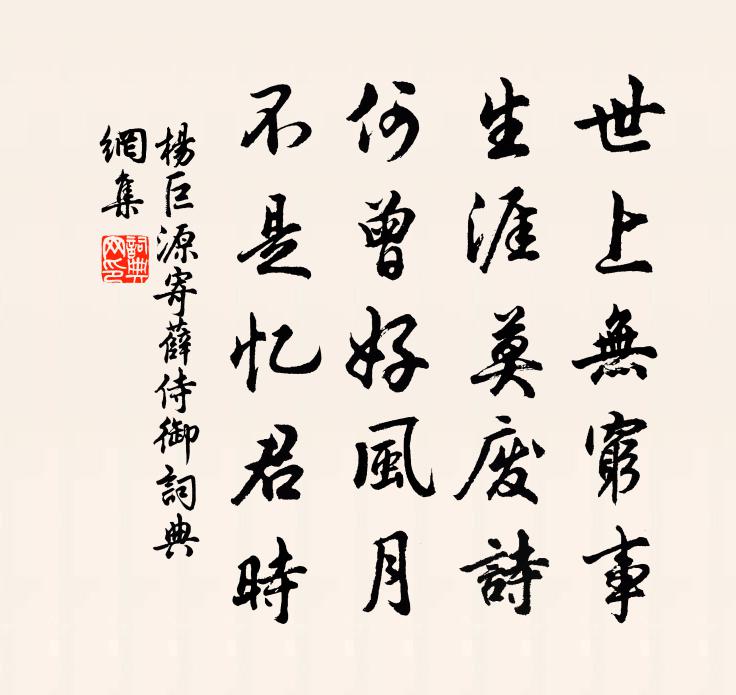 世上無窮事
生涯莫废詩
何曾好風月
不是忆君時
楊巨源寄薛侍御詞典
網集
詞典网印